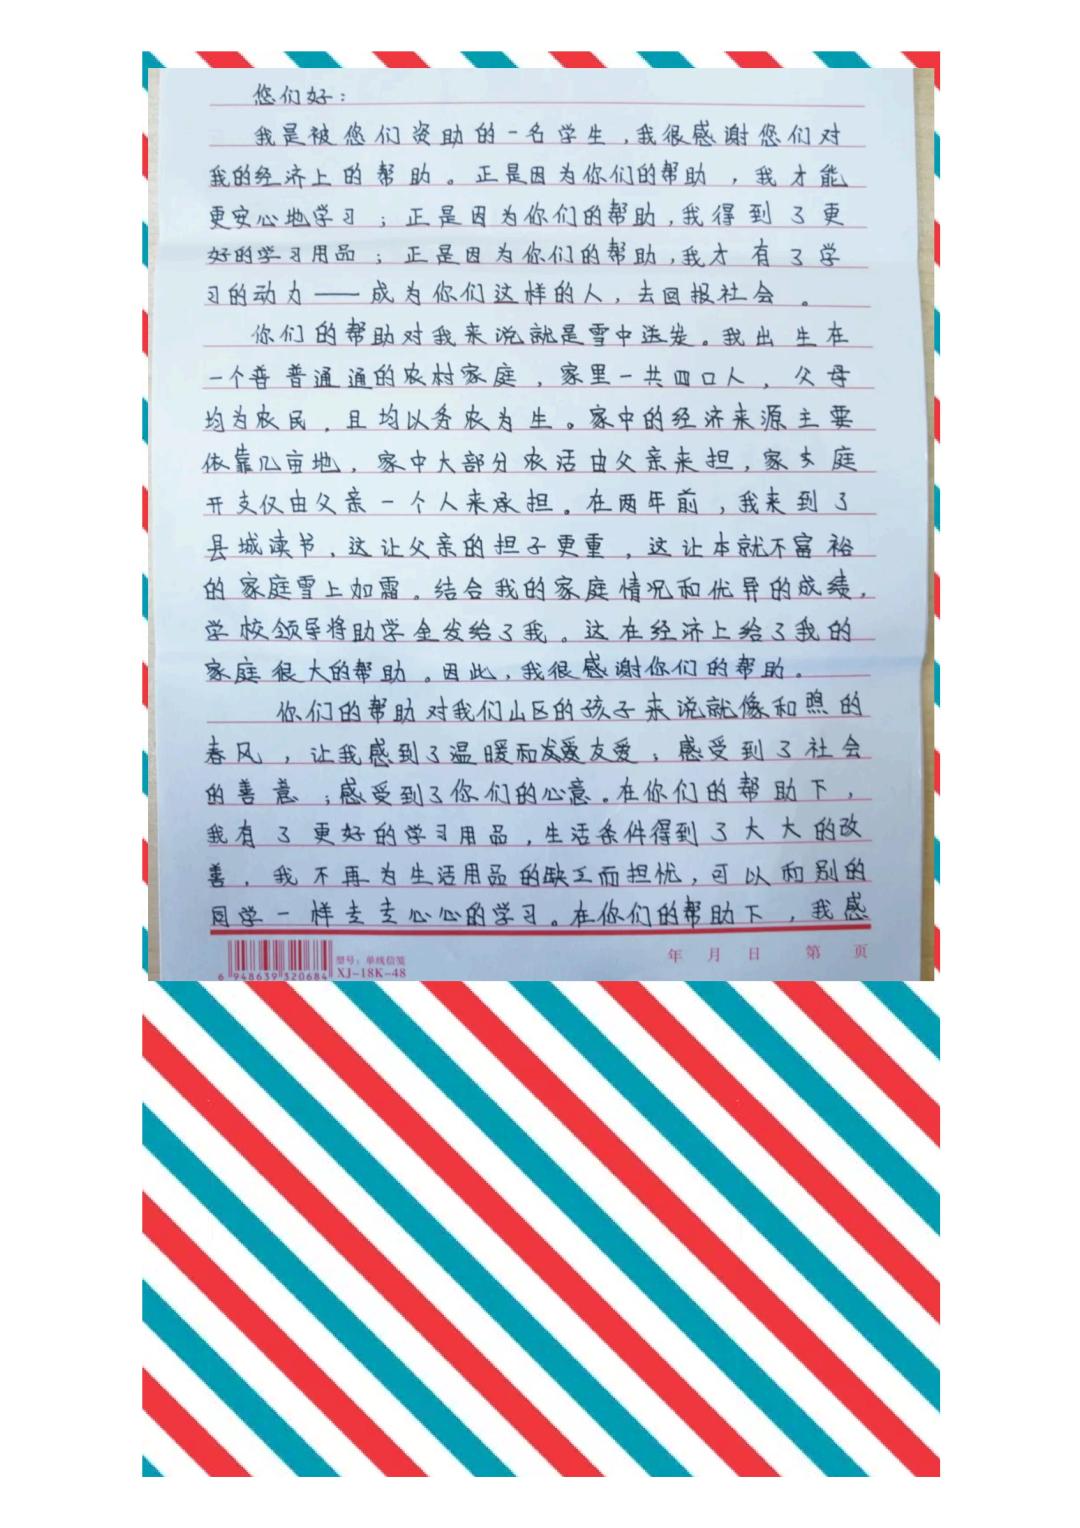 您们好：
我是被您们资助的一名学生，我很感谢您们对
我的经济上的帮助。正是因为你们的帮助，我才能
更安心地学习；正是因为你们的帮助，我得到了更
好的学习用品；正是因为你们的帮助，我才有了学
习的动力——成为你们这样的人，去回报社会。
你们的帮助对我来说就是雪中送炭。我出生在
一个普普通通的农村家庭，家里一共四口人，父母
均为农民，且均以务农为生。家中的经济来源主要
依靠几亩地，家中大部分农活由父亲来担，家庭
开支仅由父亲一个人来承担。在两年前，我来到了
县城读书，这让父亲的担子更重，这让本就不富裕
的家庭雪上加霜。结合我的家庭情况和优异的成绩，
学校领导将助学金发给了我。这在经济上给了我的
家庭很大的帮助。因此，我很感谢你们的帮助。
你们的帮助对我们山区的孩子来说就像和煦的
春风，让我感到了温暖和友爱；感受到了社会
的善意；感受到了你们的心意。在你们的帮助下，
我有了更好的学习用品，生活条件得到了大大的改
善，我不再为生活用品的缺乏而担忧，可以和别的
同学一样专专心心的学习。在你们的帮助下，我感
6 948639 320684
型号：单线信笺
XJ-18K-48
年 月 日 第 页